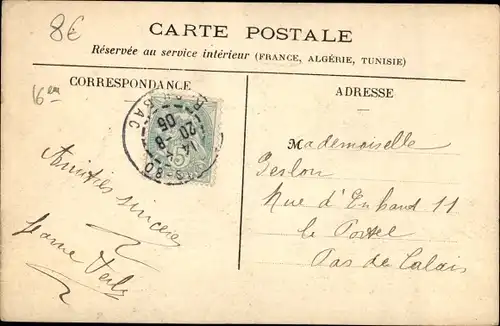 8€
CARTE POSTALE
Réservée au service intérieur (FRANCE, ALGÉRIE, TUNISIE)
CORRESPONDANCE
ADRESSE
Amitiés sincères
Jeanne
Mademoiselle
Rue d' 11
le Portel
Pas de Calais
BAC
14
20-8
05
5